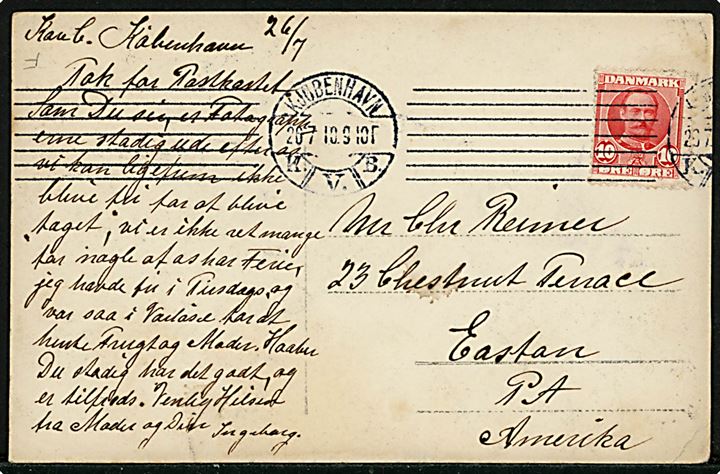 København 26/7
Tak for Postkortet
Som Du ser, er Fotograf
erne stadig ude efter os
vi kan ligefrem ikke
blive fri for at blive
"taget", vi er ikke ret mange
for nogle af os har Ferie,
jeg havde fri i Tirsdags, og
var saa i for at
hente Frugt og Moder. Haaber
Du stadig har det godt, og
er tilfreds. Venlig Hilsen
fra Moder og Din
Ingeborg.
KJØBENHAVN
26 7 10. 9-10F
K. V. B.
DANMARK
10 10
ØRE ØRE
Mr Chr Reimer
23 Chestnut Terrace
Easton
PA
Amerika